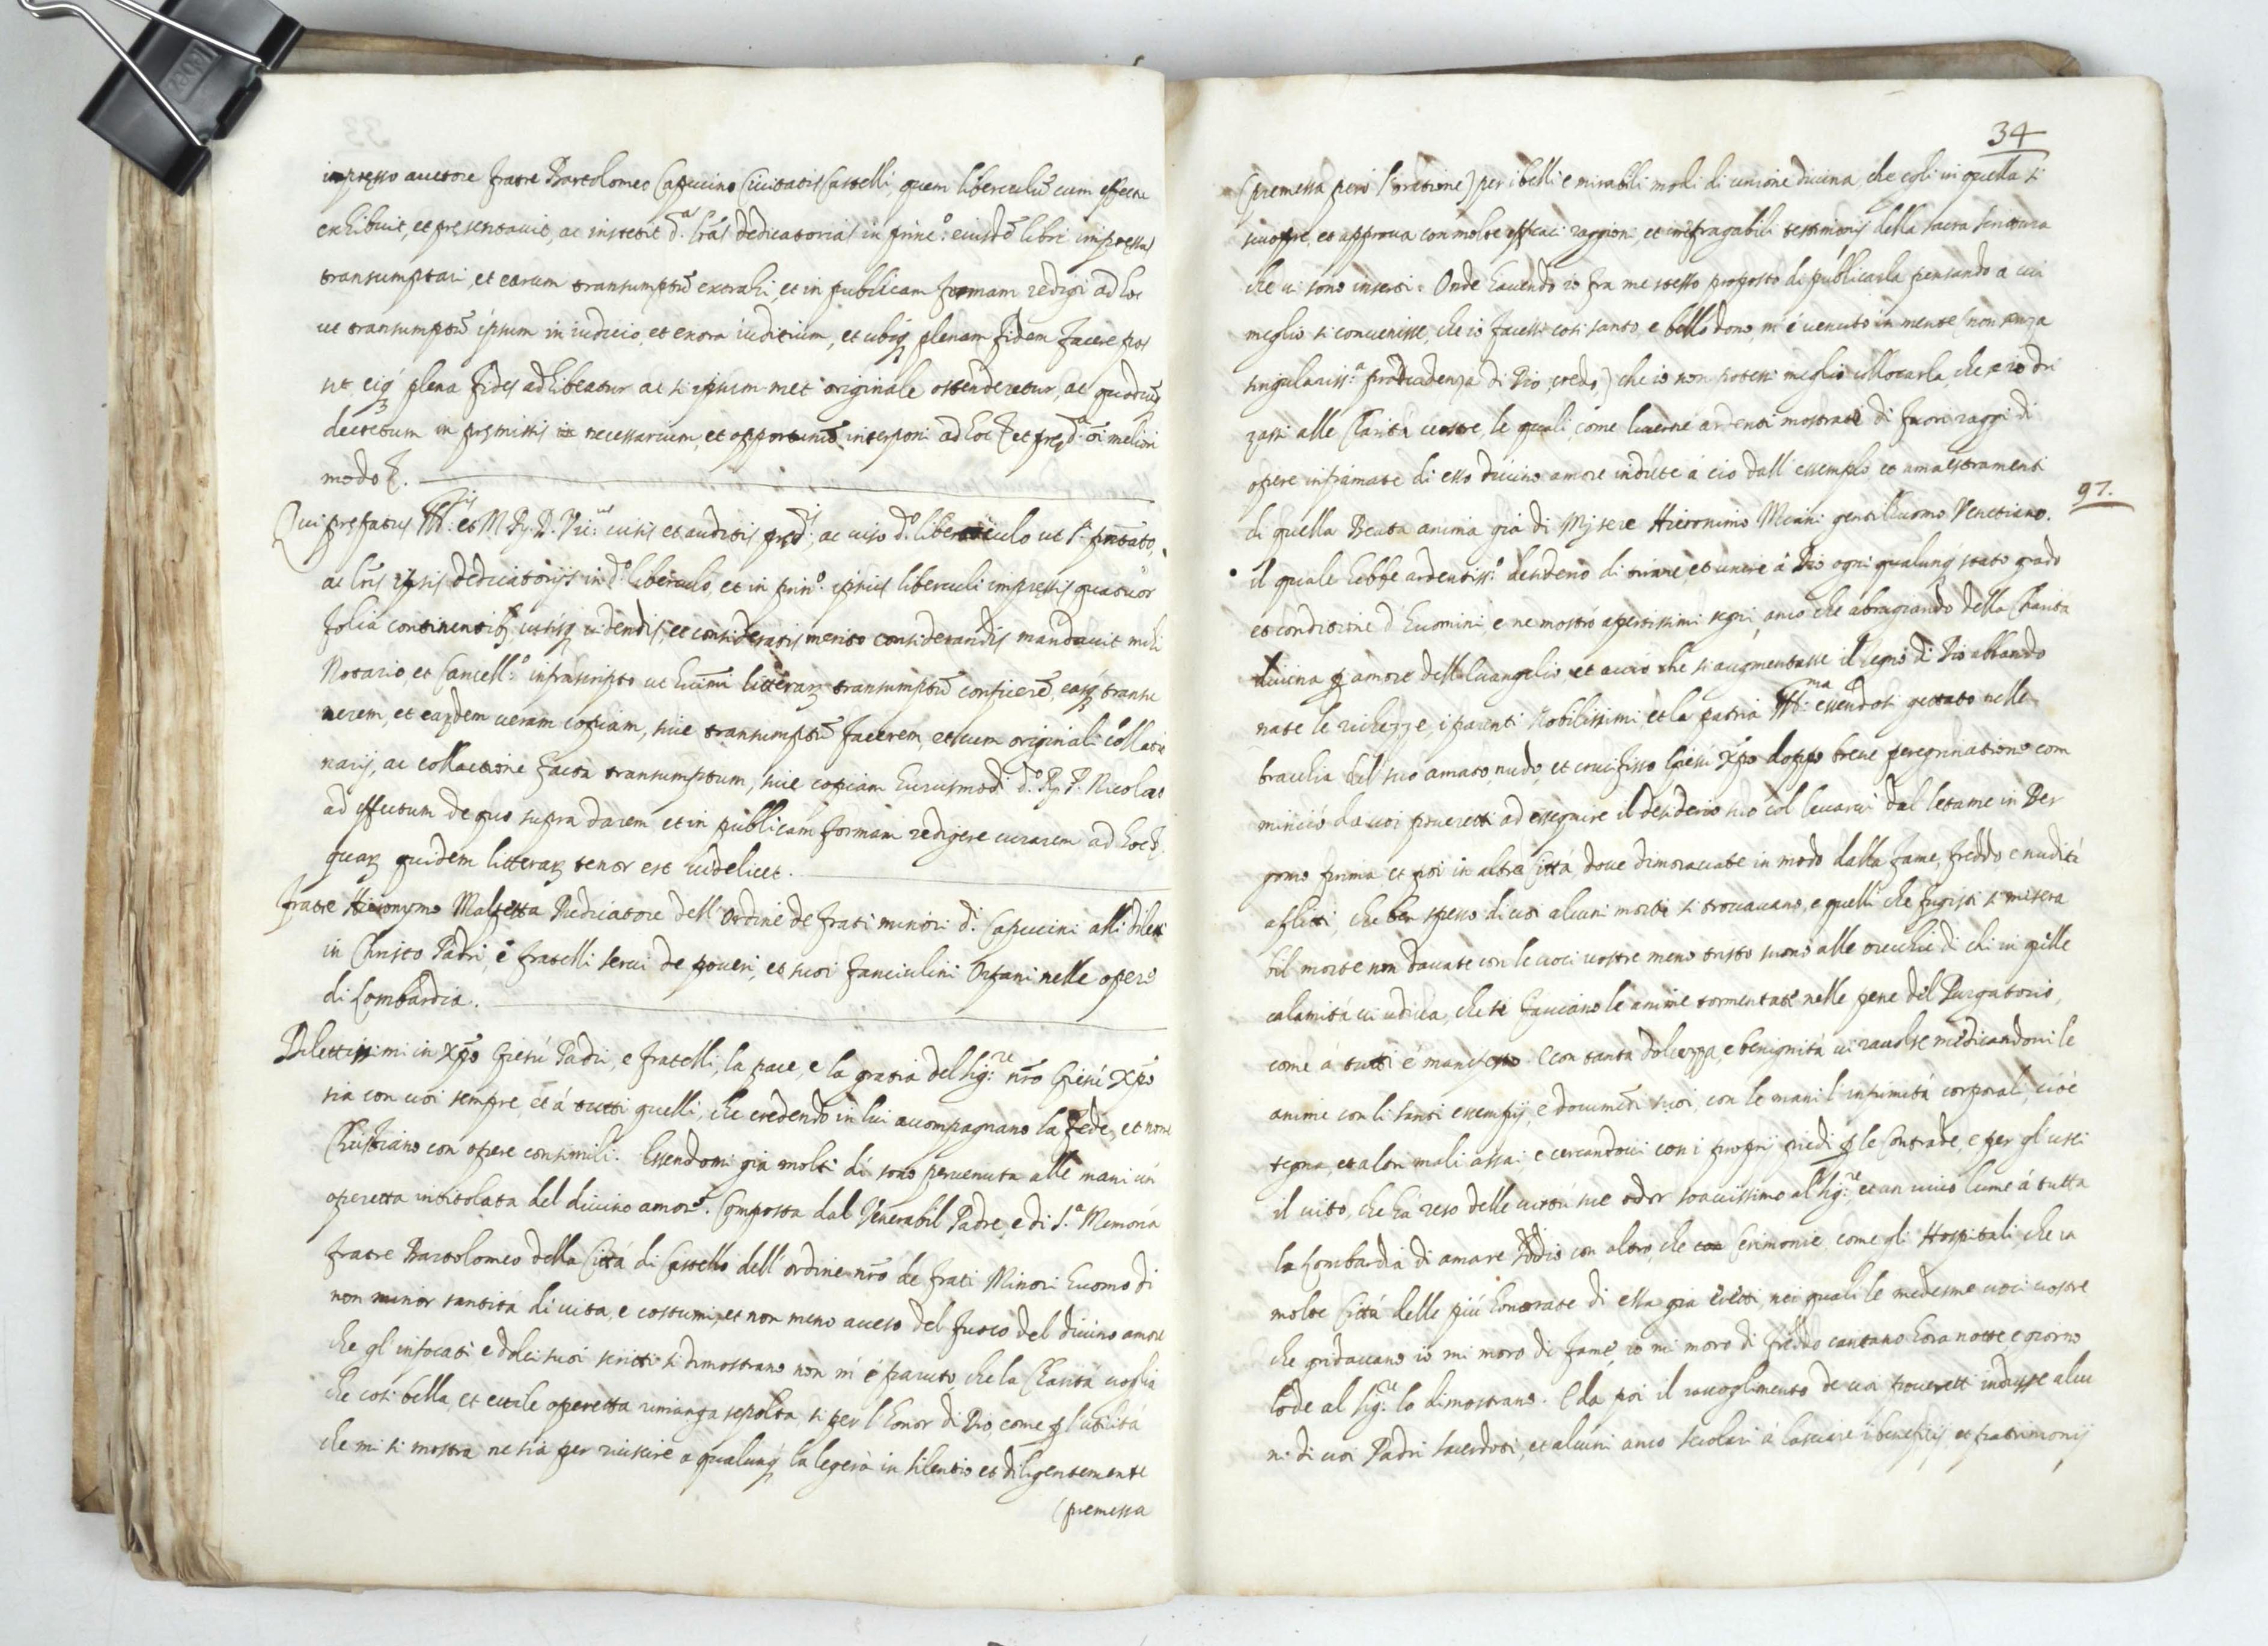 impresso auctore fratre Bartolomeo Capucino Civitatis Castelli, quem liberculū cum effectu
exhibuit, et presentavit, ac instetit d.as lr̃as dedicatorias in princ.o eiusdē libri impressas
transumptari, et earum transumptū extrahi, et in publicam formam redigi ad hoc
ut transumptū ipsum in iudicio, et extra iuditium, et ubiq; plenam fidem facere pos
sit eiq; plena fides adhibeatur ac si ipsum met originale ostenderetur, ac quodcūq;
decretum in premissis necessarium, et opportunū interponi ad hoc et pred.a oī meliori
modo &.
Qui prefatus Ill: et M. R. D. Vic: visis et auditis pred.is, ac viso d.o liberculo ut s.a pntato,
ac lr̃is ipsis dedicatorijs in d.o liberculo, et in prin.o ipsius liberculi impressis quatuor
folia continentibq; visisq; videndis, et consideratis merito considerandis mandavit mihi
Notario, et Cancell.o infrascripto ut huiusmōi litterarq; transumptū conficerē, easq; transu
merem, et earqdem veram copiam, sive transumptū facerem, et cum originali collatio
narij, ac collactione facta transumptum, sive copiam huiusmodi d.o R. P. Nicolao
ad effectum de quo supra darem et in publicam formam redigere curarem ad hoc &.
quarq; quidem litterarq; tenor est videlicet.
Fratre Hieronymo Malfetta Predicatore dell'Ordine de frati minori d.i Capucini alli diletti
in Christo Padri, e fratelli servi de poveri, et suoi fanciulini Orfani nelle opere
di Lombardia.
Dilettissimi in Xp̄o Giesù Padri, e fratelli, la pace, e la gratia del Sig:re nr̃o Giesù Xp̄o
sia con voi sempre, et à tutti quelli, che credendo in lui accompagnano la fede, et nome
Christiano con opere consimili. Essendomi già molti dì sono pervenuta alle mani un'
operetta intitolata del divino amore. Composta dal Venerabil Padre, e di S.a Memoria
fratre Bartolomeo della Città di Castello dell'ordine nr̃o de frati Minori huomo di
non minor santità di vita, e costumi, et non meno acceso del fuoco del divino amore
che gl'infocati e dolci suoi scritti si dimostrano non m'è paruto, che la Charità voglia
che così bella, et utile operetta rimanga sepolta, sì per l'honor di Dio, come p l'utilità
che mi si mostra ne sia per riuscire a qualunq; la legerà in silentio et diligentemente
(premessa
34
(premessa però l'oratione) per i belli e mirabili modi di unione divina, che egli in quella si
scuopre, et approva con molte efficaci raggioni, et irrefragabili testimonij della sacra scrittura
che vi sono inserti. Onde havendo io fra me stesso proposto di publicarla pensando a cui
meglio si convenisse, che io facessi così santo, e bello dono, m'è venuto in mente (non senza
singulariss.a providenza di Dio, credo,) che io non potessi meglio collocarla, che se io dri
zassi alle Charità vostre, le quali, come lucerne ardenti mostrate di fuori raggi di
opere infiamate di esso divino amore indutte à ciò dall'essempio et amaestramenti
di quella Beata anima già di Mjsere Hieronimo Miani gentilhuomo Venetiano.
97.
il quale hebbe ardentiss.o desiderio di tirare, et unire à Dio ogni qualunq; stato grado
et conditione d'huomini, e ne mostrò apertissimi segni, anco che abragiando della Charità
divina p amore dell'Evangelio et acciò che si augmentasse il regno di Dio abbando
nate le richezze, i parenti Nobilissimi, et la patria Ill:ma essendosi gettato nelle
bracchia del suo amato, nudo, et crucifisso Giesù Xp̄o doppo breve peregrinatione com
minciò da voi poveretti ad esseguire il desiderio suo col levarvi dal letame in Ber
gomo prima et poi in altre Città, dove dimoravate in modo dalla fame, freddo e nudità
afflitti, che ben spesso di voi alcuni morti si trovavano, e quelli che fugisti sì misera
bil morte non davate con le voci vostre meno tristo suono alle orecchie di chi in q̃lle
calamità vi udiva, che si facciano le anime tormentate nelle pene del Purgatorio,
come à tutti è manifesto. E con tanta dolcezza, e benignità vi racolse medicandovi le
anime con li santi essempij, e documēti suoi, con le mani l'infirmità corporali, cioè
tegna, et altri mali assai e cercandovi con i proprij piedi p le Contrade, e per gl'usci
il vitto, che hà reso delle virtù sue odor soavissimo al Sig:re et un vivo lume à tutta
la Lombardia di amare Iddio con altro, che con Cerimonie, come gli Hospitali, che in
molte Città delle più honorate di essa già eretti, nei quali le medesme voci vostre
che gridavano io mi moro di fame, io mi moro di freddo cantano hora notte, e giorno
lode al Sig:re lo dimostrano. E da poi il racoglimento de voi poveretti indusse alcu
ni di voi Padri sacerdoti, et alcuni anco secolari à lasciare i beneficij, et patrimonij